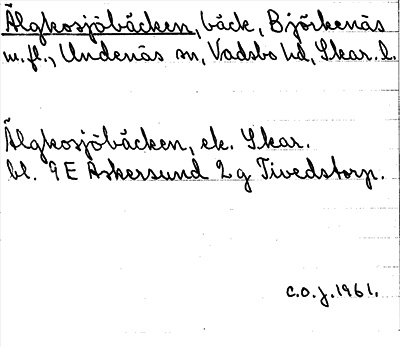 Älgkosjöbäcken, bäck, Björkenäs
m.fl., Undenäs sn, Vadsbo hd, Skar. l.
Älgkosjöbäcken, ek. Skar.
bl. 9E Askersund 2g Tivedstorp.
C.O.J. 1961.